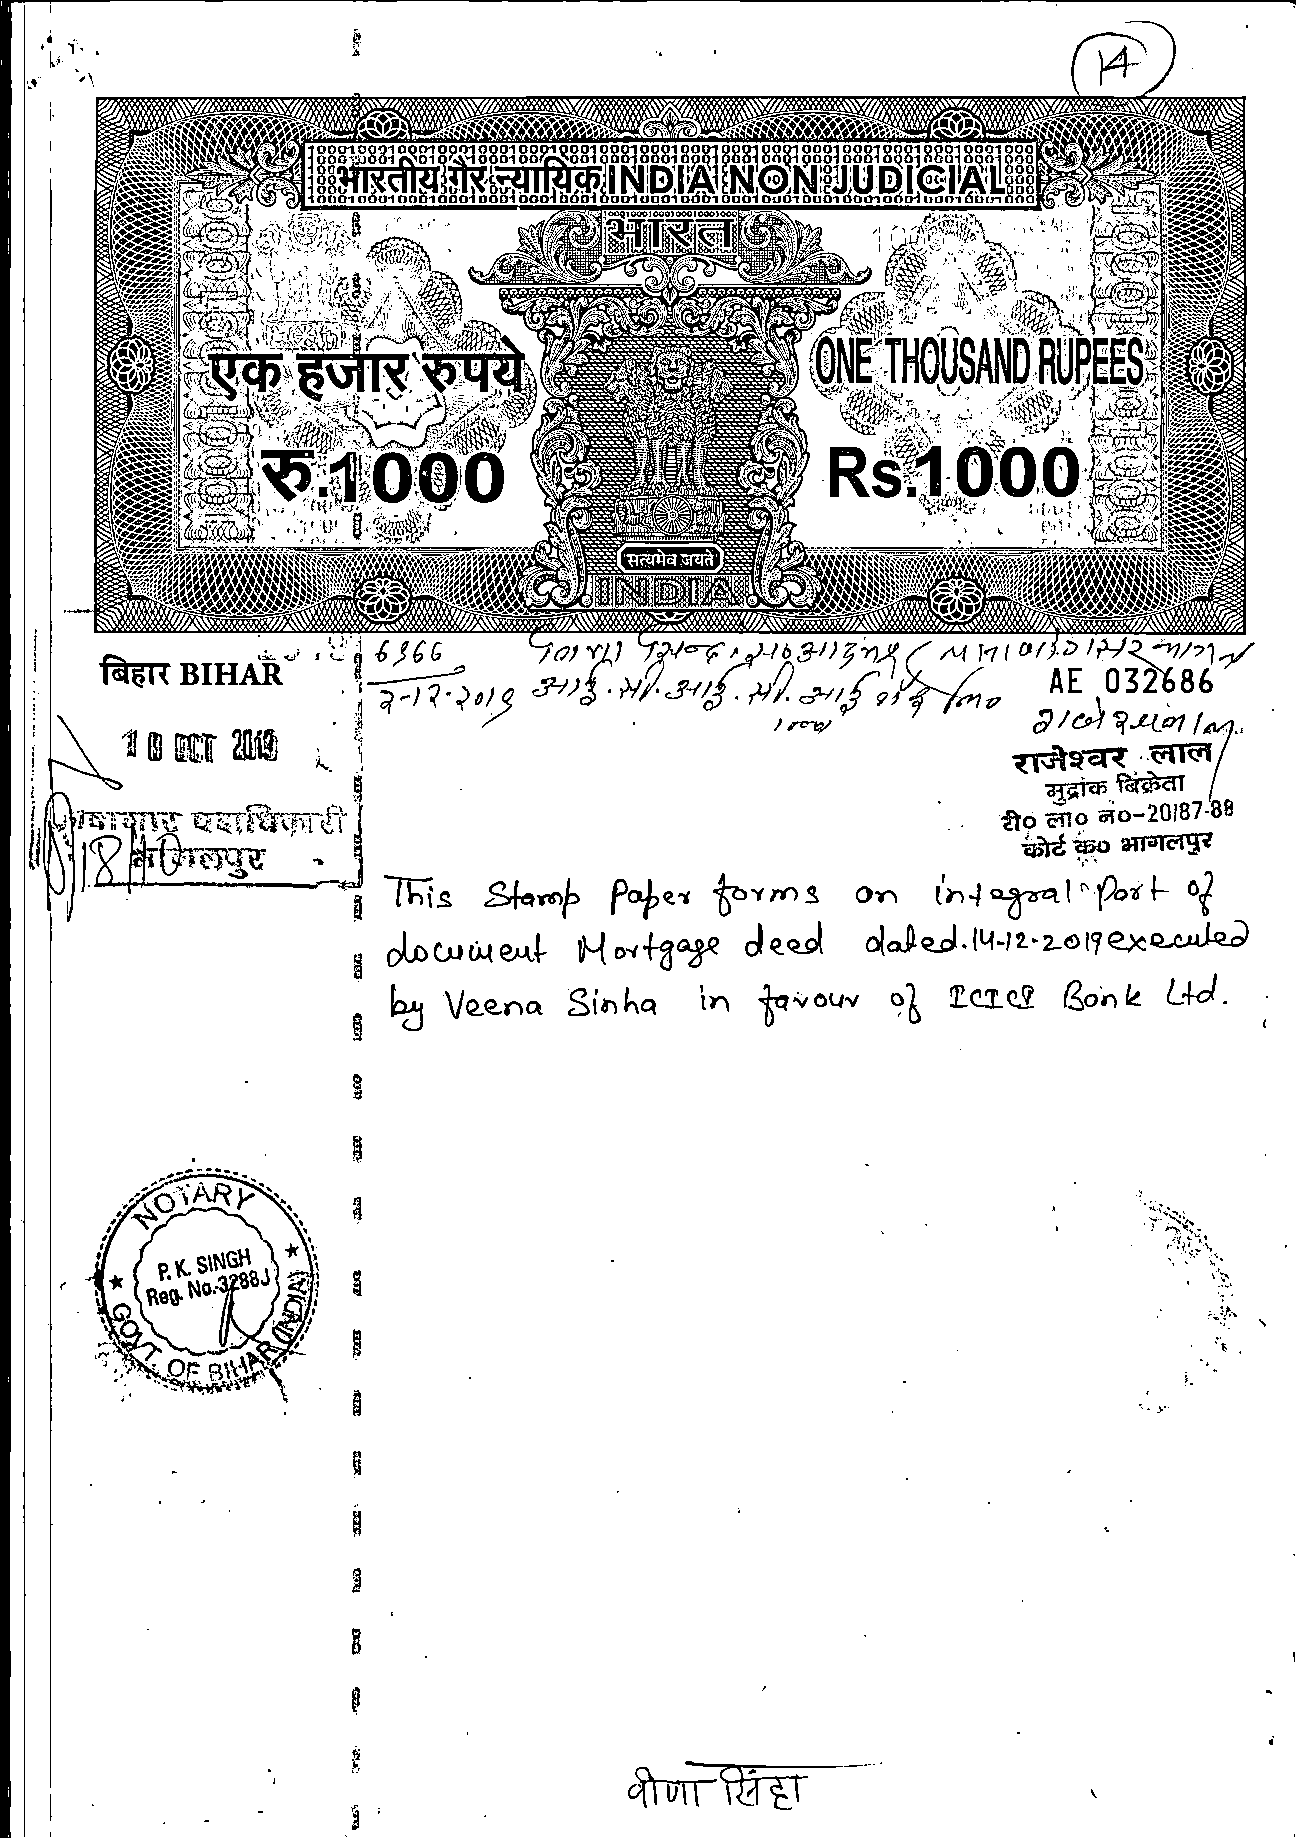 14
भारतीय गैर न्यायिक INDIA NON JUDICIAL
भारत
एक हजार रुपये
ONE THOUSAND RUPEES
रु.1000
Rs.1000
सत्यमेव जयते
INDIA
बिहार BIHAR
6966
2-12-2019
आई.सी.आई.सी.आई
1000
AE 032686
18 OCT 2019
राजेश्वर लाल
मुद्रांक बिक्रेता
टी० ला० नं०-20/87-88
कोर्ट क० भागलपुर
पदाधिकारी
भागलपुर
This Stamp Paper forms an integral part of
document Mortgage deed dated.14-12-2019 executed
by Veena Sinha in favour of ICICI Bank Ltd.
NOTARY
P. K. SINGH
Reg. No.3288J
GOVT. OF BIHAR (INDIA)
वीणा सिंहा